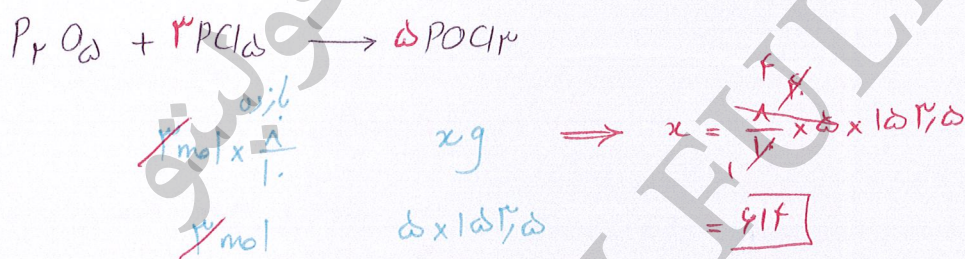 P₂O₅ + ۳PCl₅ → ۵POCl₃
بازده
۳ mol × ۸/۱۰ x g ⇒ x = ۸/۱۰ × ۵ × ۱۵۳,۵
۳ mol ۵ × ۱۵۳,۵ = ۶۱۴